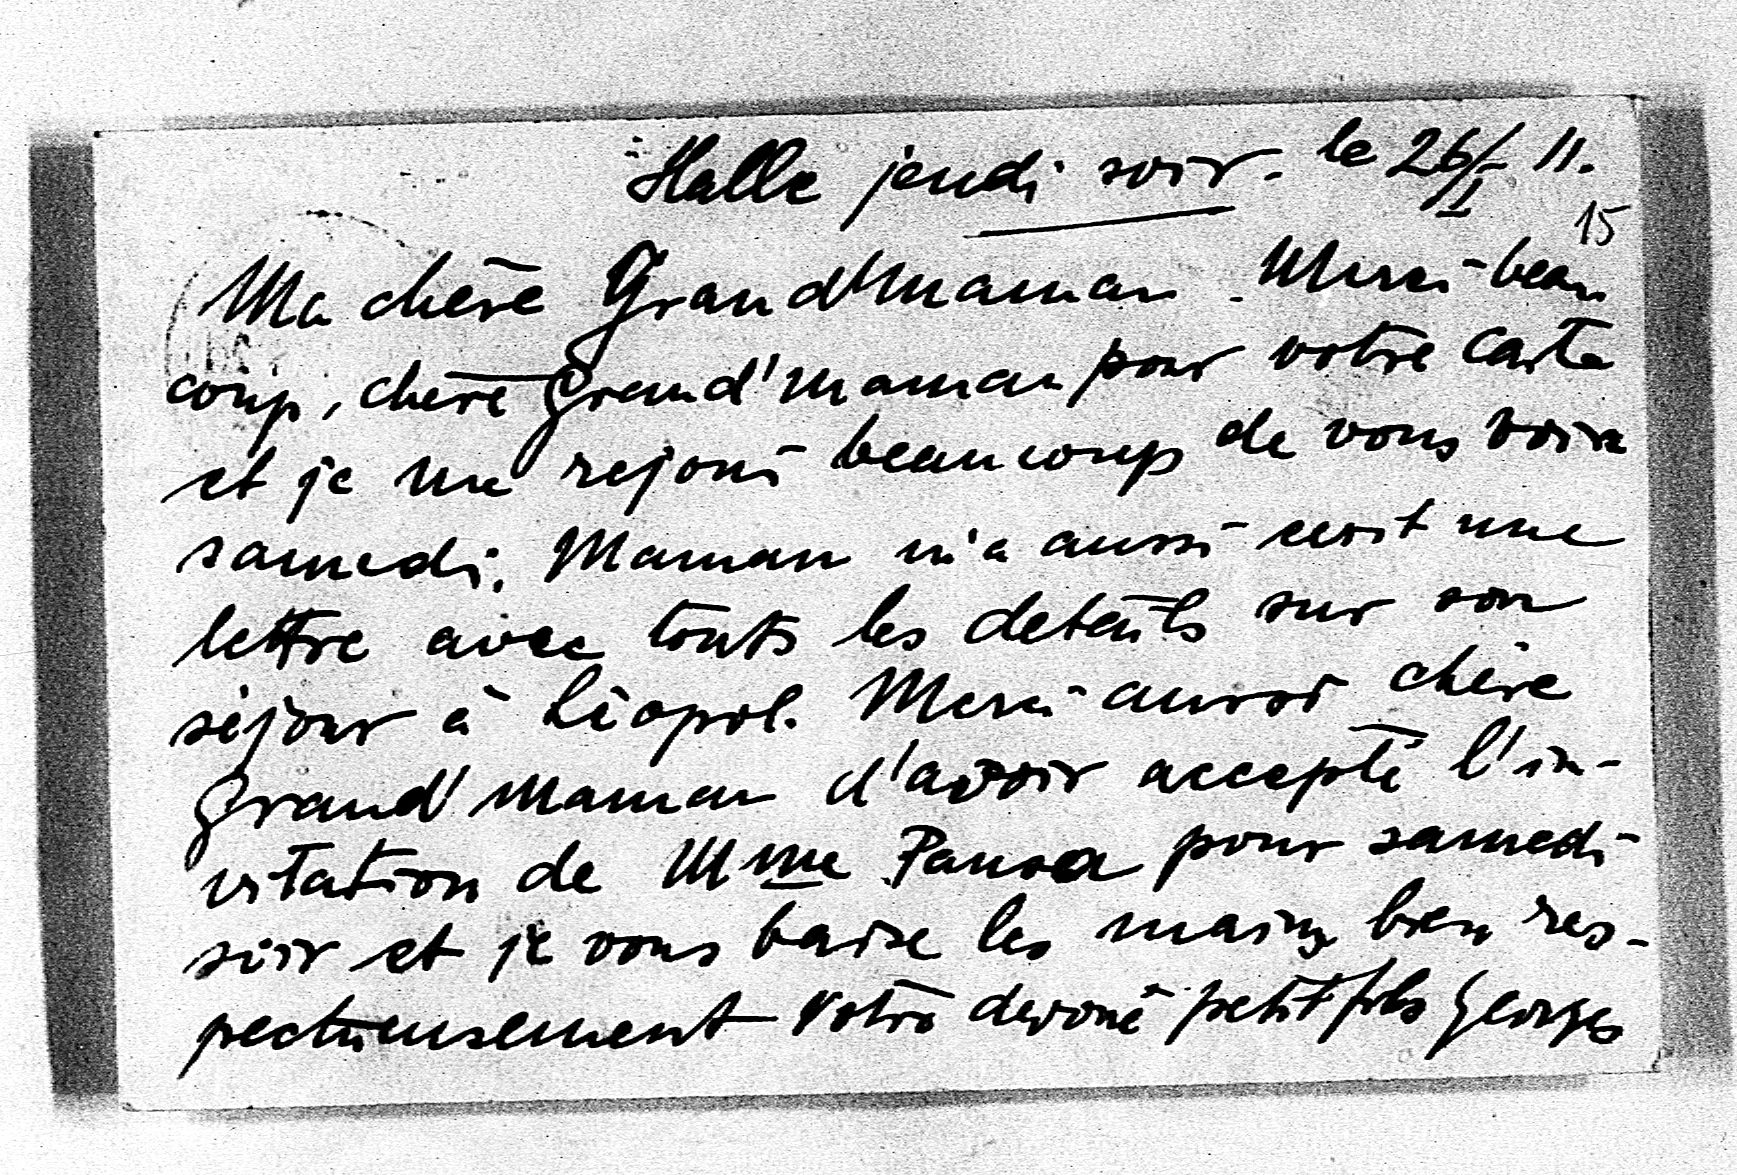 Halle jeudi soir. le 26/I 11.
15
Ma chère Grand'Maman. Merci beau
coup, chère Grand'maman pour votre carte
et je me rejoui beaucoup de vous voir
samedi. Maman m'a aussi ecrit une
lettre avec touts les details sur son
séjour à Léopol. Merci aussi chère
Grand'Maman d'avoir accepté l'in-
vitation de Mme pour samedi
soir et je vous baise les mains bien res-
pectueusement Votre devoué petit fils Georges